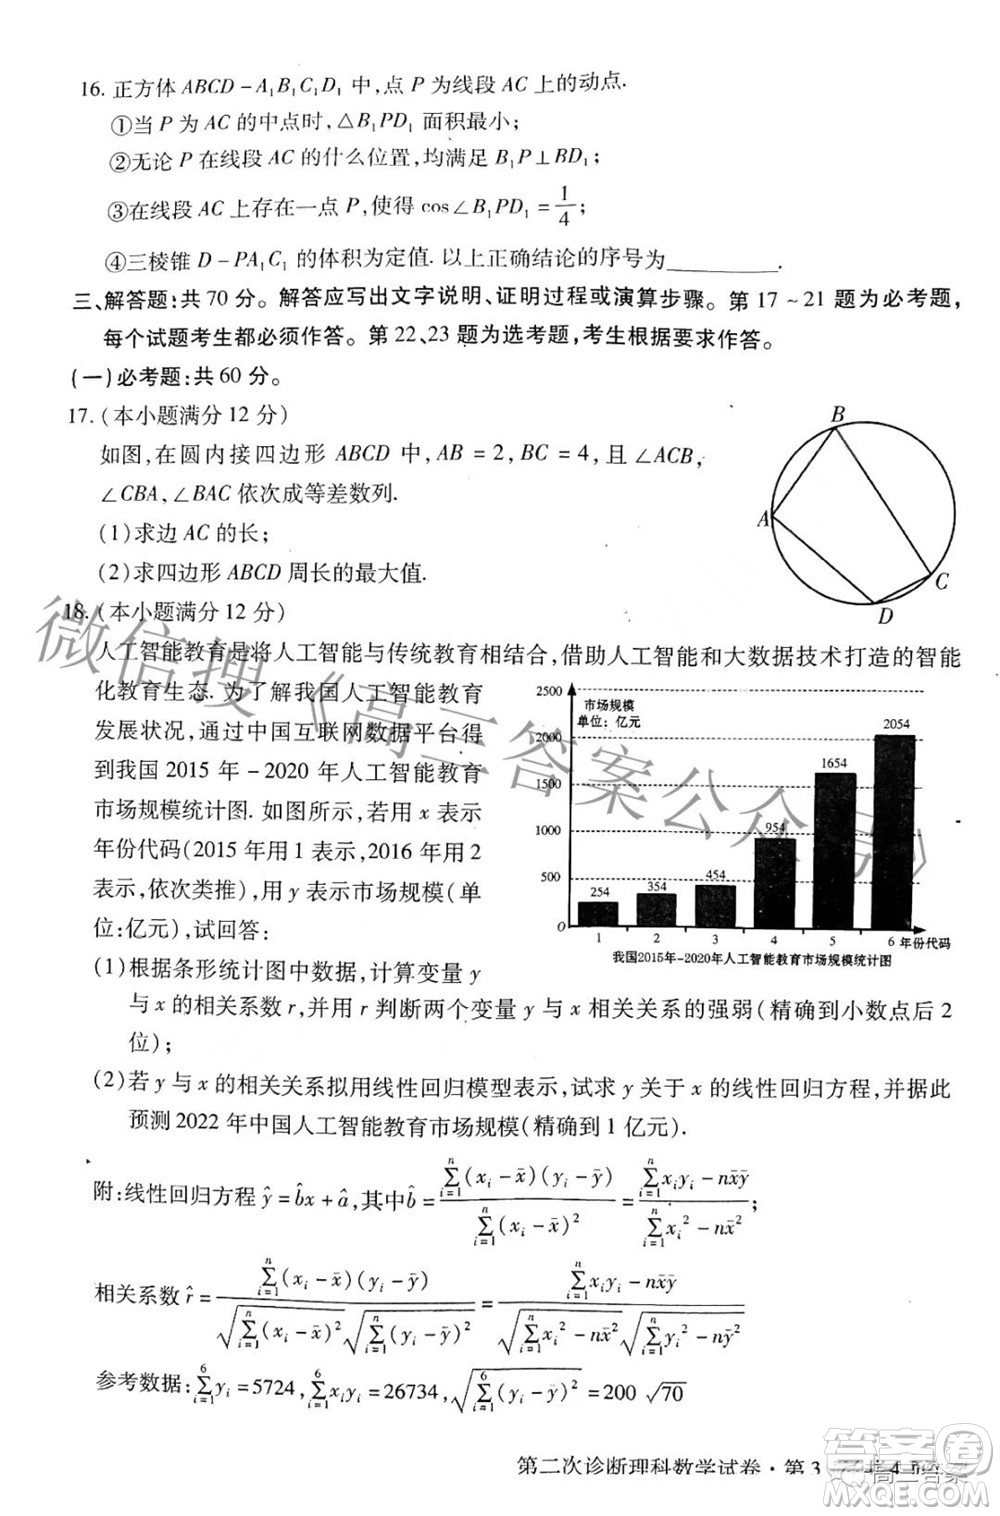 16. 正方体 ABCD-A₁B₁C₁D₁ 中,点 P 为线段 AC 上的动点.
①当 P 为 AC 的中点时,△B₁PD₁ 面积最小;
②无论 P 在线段 AC 的什么位置,均满足 B₁P⊥BD₁;
③在线段 AC 上存在一点 P,使得 cos∠B₁PD₁=1/4;
④三棱锥 D-PA₁C₁ 的体积为定值. 以上正确结论的序号为__________.
三、解答题:共 70 分。解答应写出文字说明、证明过程或演算步骤。第 17~21 题为必考题,
每个试题考生都必须作答。第 22、23 题为选考题,考生根据要求作答。
(一)必考题:共 60 分。
17. (本小题满分 12 分)
如图,在圆内接四边形 ABCD 中,AB=2,BC=4,且∠ACB,
∠CBA,∠BAC 依次成等差数列.
(1)求边 AC 的长;
(2)求四边形 ABCD 周长的最大值.
B
A
C
D
18. (本小题满分 12 分)
人工智能教育是将人工智能与传统教育相结合,借助人工智能和大数据技术打造的智能
化教育生态. 为了解我国人工智能教育
发展状况,通过中国互联网数据平台得
到我国 2015 年-2020 年人工智能教育
市场规模统计图. 如图所示,若用 x 表示
年份代码(2015 年用 1 表示,2016 年用 2
表示,依次类推),用 y 表示市场规模(单
位:亿元),试回答:
2500
2000
1500
1000
500
0
市场规模
单位:亿元
254
354
454
954
1654
2054
1 2 3 4 5 6 年份代码
我国2015年-2020年人工智能教育市场规模统计图
(1)根据条形统计图中数据,计算变量 y
与 x 的相关系数 r,并用 r 判断两个变量 y 与 x 相关关系的强弱(精确到小数点后 2
位);
(2)若 y 与 x 的相关关系拟用线性回归模型表示,试求 y 关于 x 的线性回归方程,并据此
预测 2022 年中国人工智能教育市场规模(精确到 1 亿元).
附:线性回归方程 ŷ=b̂x+â,其中 b̂=∑ⁿᵢ₌₁(xᵢ-x̄)(yᵢ-ȳ)/∑ⁿᵢ₌₁(xᵢ-x̄)²=(∑ⁿᵢ₌₁xᵢyᵢ-nx̄ȳ)/(∑ⁿᵢ₌₁xᵢ²-nx̄²);
相关系数 r̂=∑ⁿᵢ₌₁(xᵢ-x̄)(yᵢ-ȳ)/(√(∑ⁿᵢ₌₁(xᵢ-x̄)²)√(∑ⁿᵢ₌₁(yᵢ-ȳ)²))=(∑ⁿᵢ₌₁xᵢyᵢ-nx̄ȳ)/(√(∑ⁿᵢ₌₁xᵢ²-nx̄²)√(∑ⁿᵢ₌₁yᵢ²-nȳ²))
参考数据:∑⁶ᵢ₌₁yᵢ=5724,∑⁶ᵢ₌₁xᵢyᵢ=26734,√(∑⁶ᵢ₌₁(yᵢ-ȳ)²)=200√70
第二次诊断理科数学试卷·第 3
共 4
微信搜《高三答案公众号》
高三答案
答案圈
MXQE.COM